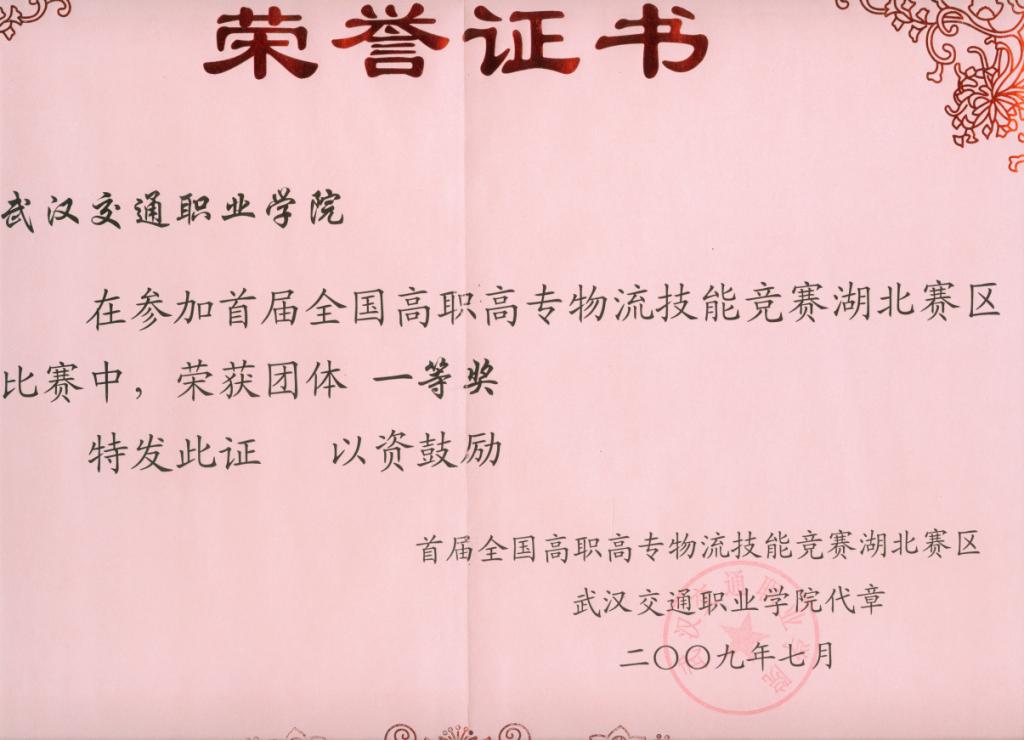 荣誉证书
武汉交通职业学院
在参加首届全国高职高专物流技能竞赛湖北赛区
比赛中，荣获团体 一等奖
特发此证 以资鼓励
首届全国高职高专物流技能竞赛湖北赛区
武汉交通职业学院代章
二〇〇九年七月
武汉交通职业学院